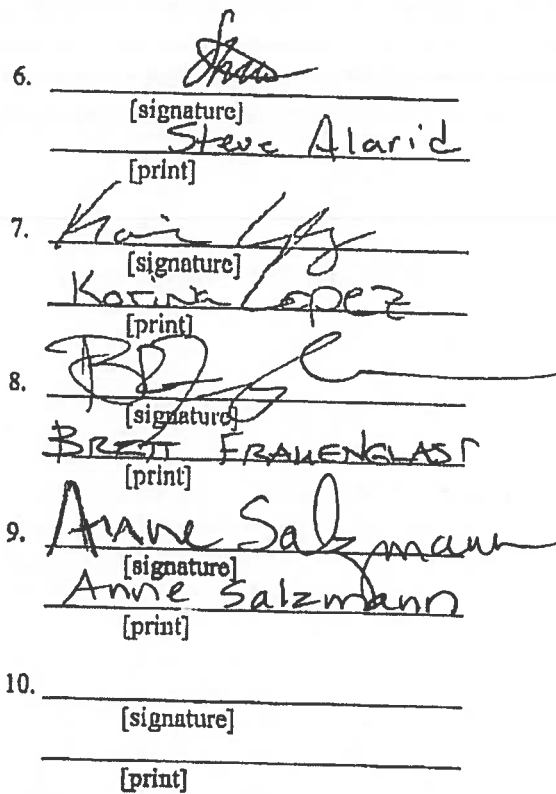 6.
[signature]
Steve Alarid
[print]
7.
[signature]
Korina Lopez
[print]
8.
[signature]
BRETT FRAUENGLAST
[print]
9. Anne Salzmann
[signature]
Anne Salzmann
[print]
10.
[signature]
[print]